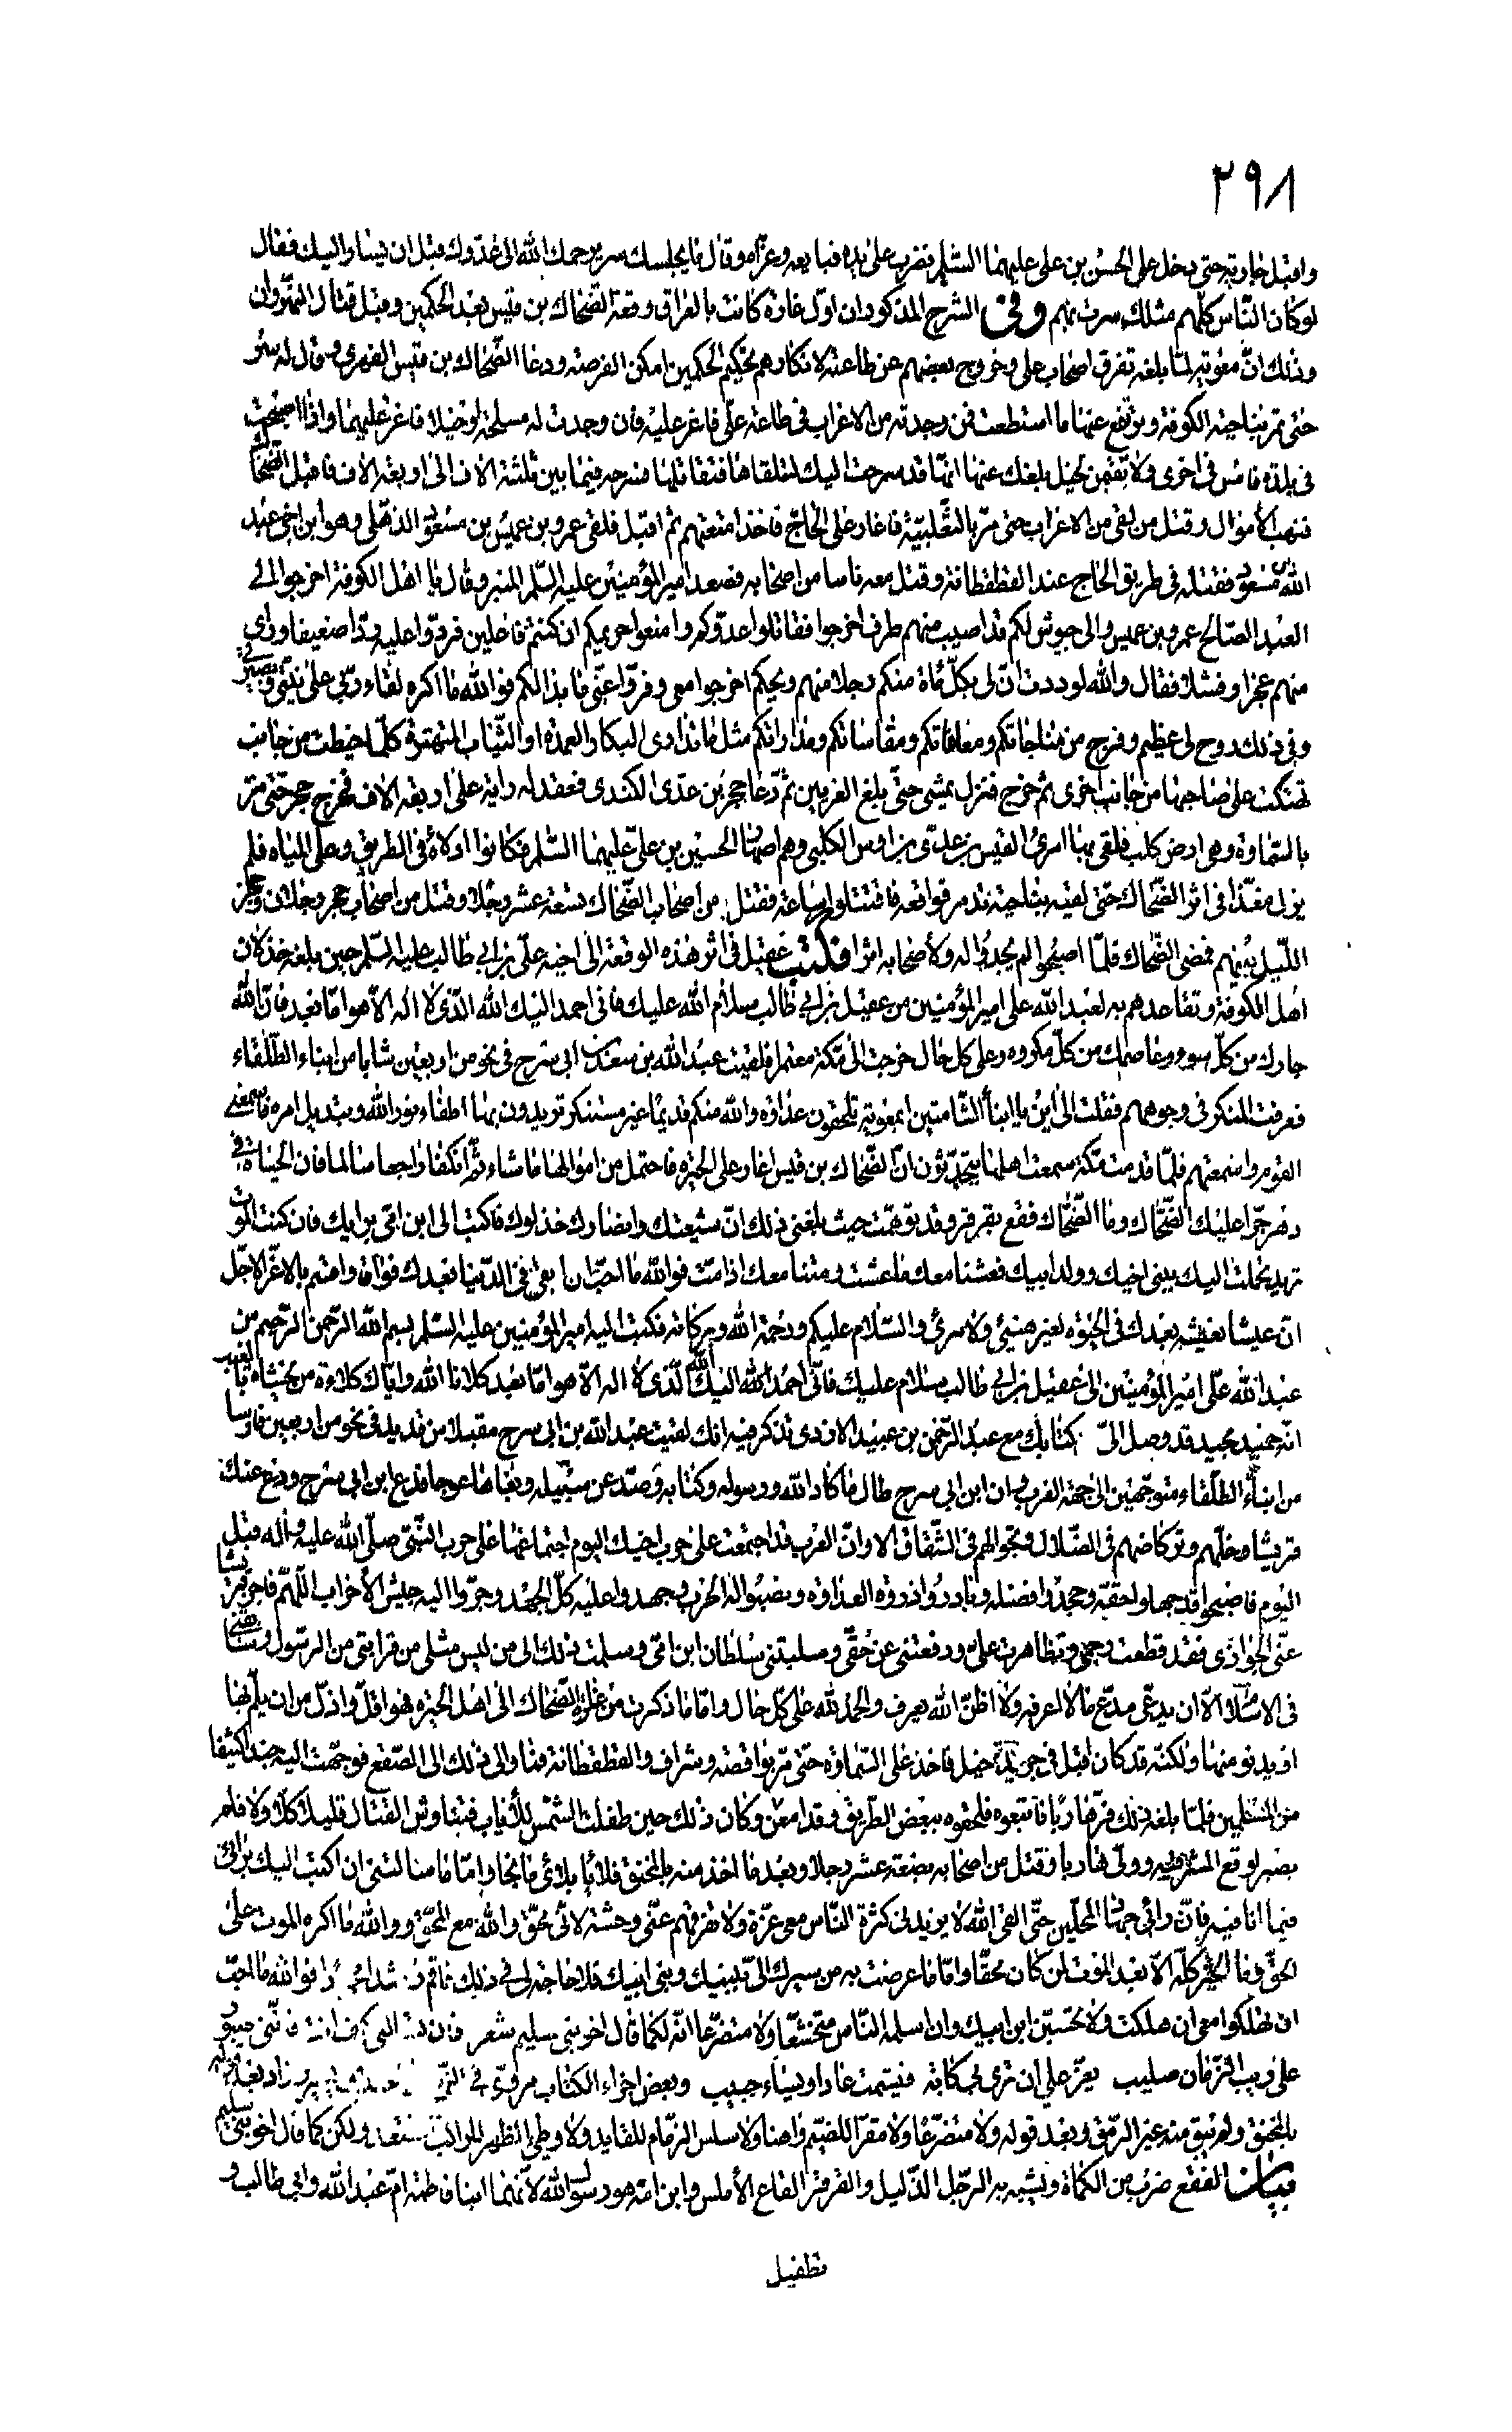 ٢٩٨
واقبل جارية حتى دخل على الحسن بن على عليهما السلم فضرب على يده فبايعه وعزاه وقال ما يجلسك سر يرحمك الله الى عدوك قبل ان يسار اليك فقال
لو كان الناس كلهم مثلك سرت بهم وفى الشرح المذكور ان اول غارة كانت بالعراق وقعة الضحاك بن قيس بعد الحكمين وقبل قتال النهروان
وذلك ان معوية لما بلغه تفرق اصحاب على وخروج بعضهم عن طاعته لانكارهم تحكيم الحكمين امكن الفرصة ودعا الضحاك بن قيس الفهرى وقال له سر
حتى تمر بناحية الكوفة وترتفع عنها ما استطعت فمن وجدته من الاعراب فى طاعة على فاغر عليه فان وجدت له مسلحة او خيلا فاغر عليهما واذا اصبحت
فى بلدة فامس فى اخرى ولا تقيمن لخيل بلغك عنها انها قد سرحت اليك لتلقاها فتقاتلها فسرحه فيما بين ثلثة الاف الى اربعة الاف فاقبل الضحاك
فنهب الاموال وقتل من لقى من الاعراب حتى مر بالثعلبية فاغار على الحاج فاخذ امتعتهم ثم اقبل فلقى عمرو بن عميس بن مسعود الذهلى وهو ابن اخى عبد
الله بن مسعود فقتله فى طريق الحاج عند القطقطانة وقتل معه ناسا من اصحابه فصعد امير المؤمنين عليه السلم المنبر وقال يا اهل الكوفة اخرجوا الى
العبد الصالح عمرو بن عميس والى جيوش لكم قد اصيب منهم طرف اخرجوا فقاتلوا عدوكم وامنعوا حريمكم ان كنتم فاعلين فردوا عليه ردا ضعيفا وراى
منهم عجزا وفشلا فقال والله لوددت ان لى بكل مأة منكم رجلا منهم ويحكم اخرجوا معى وفروا عنى ما بدا لكم فوالله ما اكره لقاء ربى على نيتى وبصيرتى
وفى ذلك روح لى عظيم وفرج من مناجاتكم ومعاناتكم ومقاساتكم ومداراتكم مثل ما تدارى البكار العمدة او الثياب المتهترة كلما خيطت من جانب
تهتكت على صاحبها من جانب اخرى ثم خرج فنزل يمشى حتى بلغ الغريين ثم دعا حجر بن عدى الكندى فعقد له راية على اربعة الاف فخرج حجر حتى مر
بالسماوة وهى ارض كلب فلقى بها امرئ القيس بن عدى بن اوس الكلبى وهم اصهار الحسين بن على عليهما السلم فكانوا ادلاءه فى الطريق وعلى المياه فلم
يزل مغذا فى اثر الضحاك حتى لقيه بناحية تدمر فواقعه فاقتتلوا ساعة فقتل من اصحاب الضحاك تسعة عشر رجلا وقتل من اصحاب حجر رجلان وحجز
الليل بينهم فمضى الضحاك فلما اصبحوا لم يجدوا له ولاصحابه اثرا فكتب عقيل فى اثر هذه الوقعة الى اخيه على بن ابى طالب عليه السلم حين بلغه خذلان
اهل الكوفة وتقاعدهم به لعبد الله على امير المؤمنين من عقيل بن ابى طالب سلام الله عليك فانى احمد اليك الله الذى لا اله الا هو اما بعد فان الله
جارك من كل سوء وعاصمك من كل مكروه وعلى كل حال خرجت الى مكة معتمرا فلقيت عبد الله بن سعد بن ابى سرح فى نحو من اربعين شابا من ابناء الطلقاء
فعرفت المنكر فى وجوههم فقلت الى اين يا ابناء الشامتين ابمعوية تلحقون عداوة والله منكم قديما غير مستنكر تريدون بها اطفاء نور الله وتبديل امره فاسمعنى
القوم واسمعتهم فلما قدمت مكة سمعت اهلها يتحدثون ان الضحاك بن قيس اغار على الحيرة فاحتمل من اموالها ما شاء ثم انكفا راجعا سالما فان الحياة فى
دهر جرا عليك الضحاك وما الضحاك فقع بقرقر وقد توهمت حيث بلغنى ذلك ان شيعتك وانصارك خذلوك فاكتب الى ابن امى برايك فان كنت الموت
تريد تحملت اليك ببنى اخيك وولد ابيك فعشنا معك ما عشت ومتنا معك اذا مت فوالله ما احب ان ابقى فى الدنيا بعدك فواقا واقسم بالاعز الاجل
ان عيشا نعيشه بعدك فى الحيوة لغير هنيئ ولا مرئ والسلام عليكم ورحمة الله وبركاته فكتب اليه امير المؤمنين عليه السلم بسم الله الرحمن الرحيم من
عبد الله على امير المؤمنين الى عقيل بن ابى طالب سلام عليك فانى احمد الله اليك الله الذى لا اله الا هو اما بعد كلانا الله واياك كلاءة من يخشاه بالغيب
انه حميد مجيد قد وصل الى كتابك مع عبد الرحمن بن عبيد الازدى تذكر فيه انك لقيت عبد الله بن ابى سرح مقبلا من قديد فى نحو من اربعين فارسا
من ابناء الطلقاء متوجهين الى جهة الغرب وان ابن ابى سرح طال ما كاد الله ورسوله وكتابه وصد عن سبيله وبغاها عوجا فدع ابن ابى سرح ودع عنك
قريشا وخلهم وتركاضهم فى الضلال وتجوالهم فى الشقاق الا وان العرب قد اجتمعت على حرب اخيك اليوم اجتماعها على حرب النبى صلى الله عليه واله قبل
اليوم فاصبحوا قد جهلوا حقه وجحدوا فضله وبادروا ذروه العداوة ونصبوا له الحرب وجهدوا عليه كل الجهد وجروا اليه جيش الاحزاب اللهم فاجز قريشا
عنى الجوازى فقد قطعت رحمى وتظاهرت على ودفعتنى عن حقى وسلبتنى سلطان ابن امى وسلمت ذلك الى من ليس مثلى من قرابتى من الرسول وسابقتى
فى الاسلام الا ان يدعى مدع ما لا اعرفه ولا اظن الله يعرف والحمد لله على كل حال واما ما ذكرت من غارة الضحاك الى اهل الحيرة فهو اقل واذل من ان يلم بها
او يدنو منها ولكنه قد كان اقبل فى جريدة خيل فاخذ على السماوة حتى مر بواقصة وشراف والقطقطانة فما والى ذلك الى الصقع فوجهت اليه جندا كثيفا
من المسلمين فلما بلغه ذلك فر هاربا فاتبعوه فلحقوه ببعض الطريق وقد امعن وكان ذلك حين طفلت الشمس للاياب فتناوش القتال قليلا كلا ولا فلم
يصبر لوقع المشرفية وولى هاربا وقتل من اصحابه بضعة عشر رجلا وبعد ما اخذ منه بالمخنق فلايا بلائ ما نجا واما ما سالتنى ان اكتب اليك برائى
فيما انا فيه فان رائى جهاد المحلين حتى القى الله لا يزيدنى كثرة الناس معى عزة ولا تفرقهم عنى وحشة لانى محق والله مع المحق ووالله ما اكره الموت على
الحق وما الخير كله الا بعد الموت لمن كان محقا واما ما عرضت به من سيرك الى ببنيك وبنى ابيك فلا حاجة لى فى ذلك فاقم راشدا فوالله ما احب
ان تهلكوا معى ان هلكت ولا تحسبن ابن ابيك وان اسلمه الناس متخشعا ولا متضرعا انه لكما قال اخو بنى سليم شعر فان تسالينى كيف انت فاننى صبور
على ريب الزمان صليب يعز على ان ترى بى كابة فيشمت عاد او يساء حبيب وبعض اجزاء الكتاب مروى فى زاد بعد قوله
بالمخنق ولم يبق منه غير الرمق وبعد قوله ولا متضرعا ولا مقرا للضيم واهنا ولا سلس الزمام للقايد ولا وطئ الظهر للراكب ولكن كما قال اخو بنى سليم
بيان الفقع ضرب من الكماة ويشبه به الرجل الذليل والقرقر القاع الاملس وابن امه هو رسول الله لانهما ابنا فاطمة ام عبد الله وابى طالب و
تطفيل